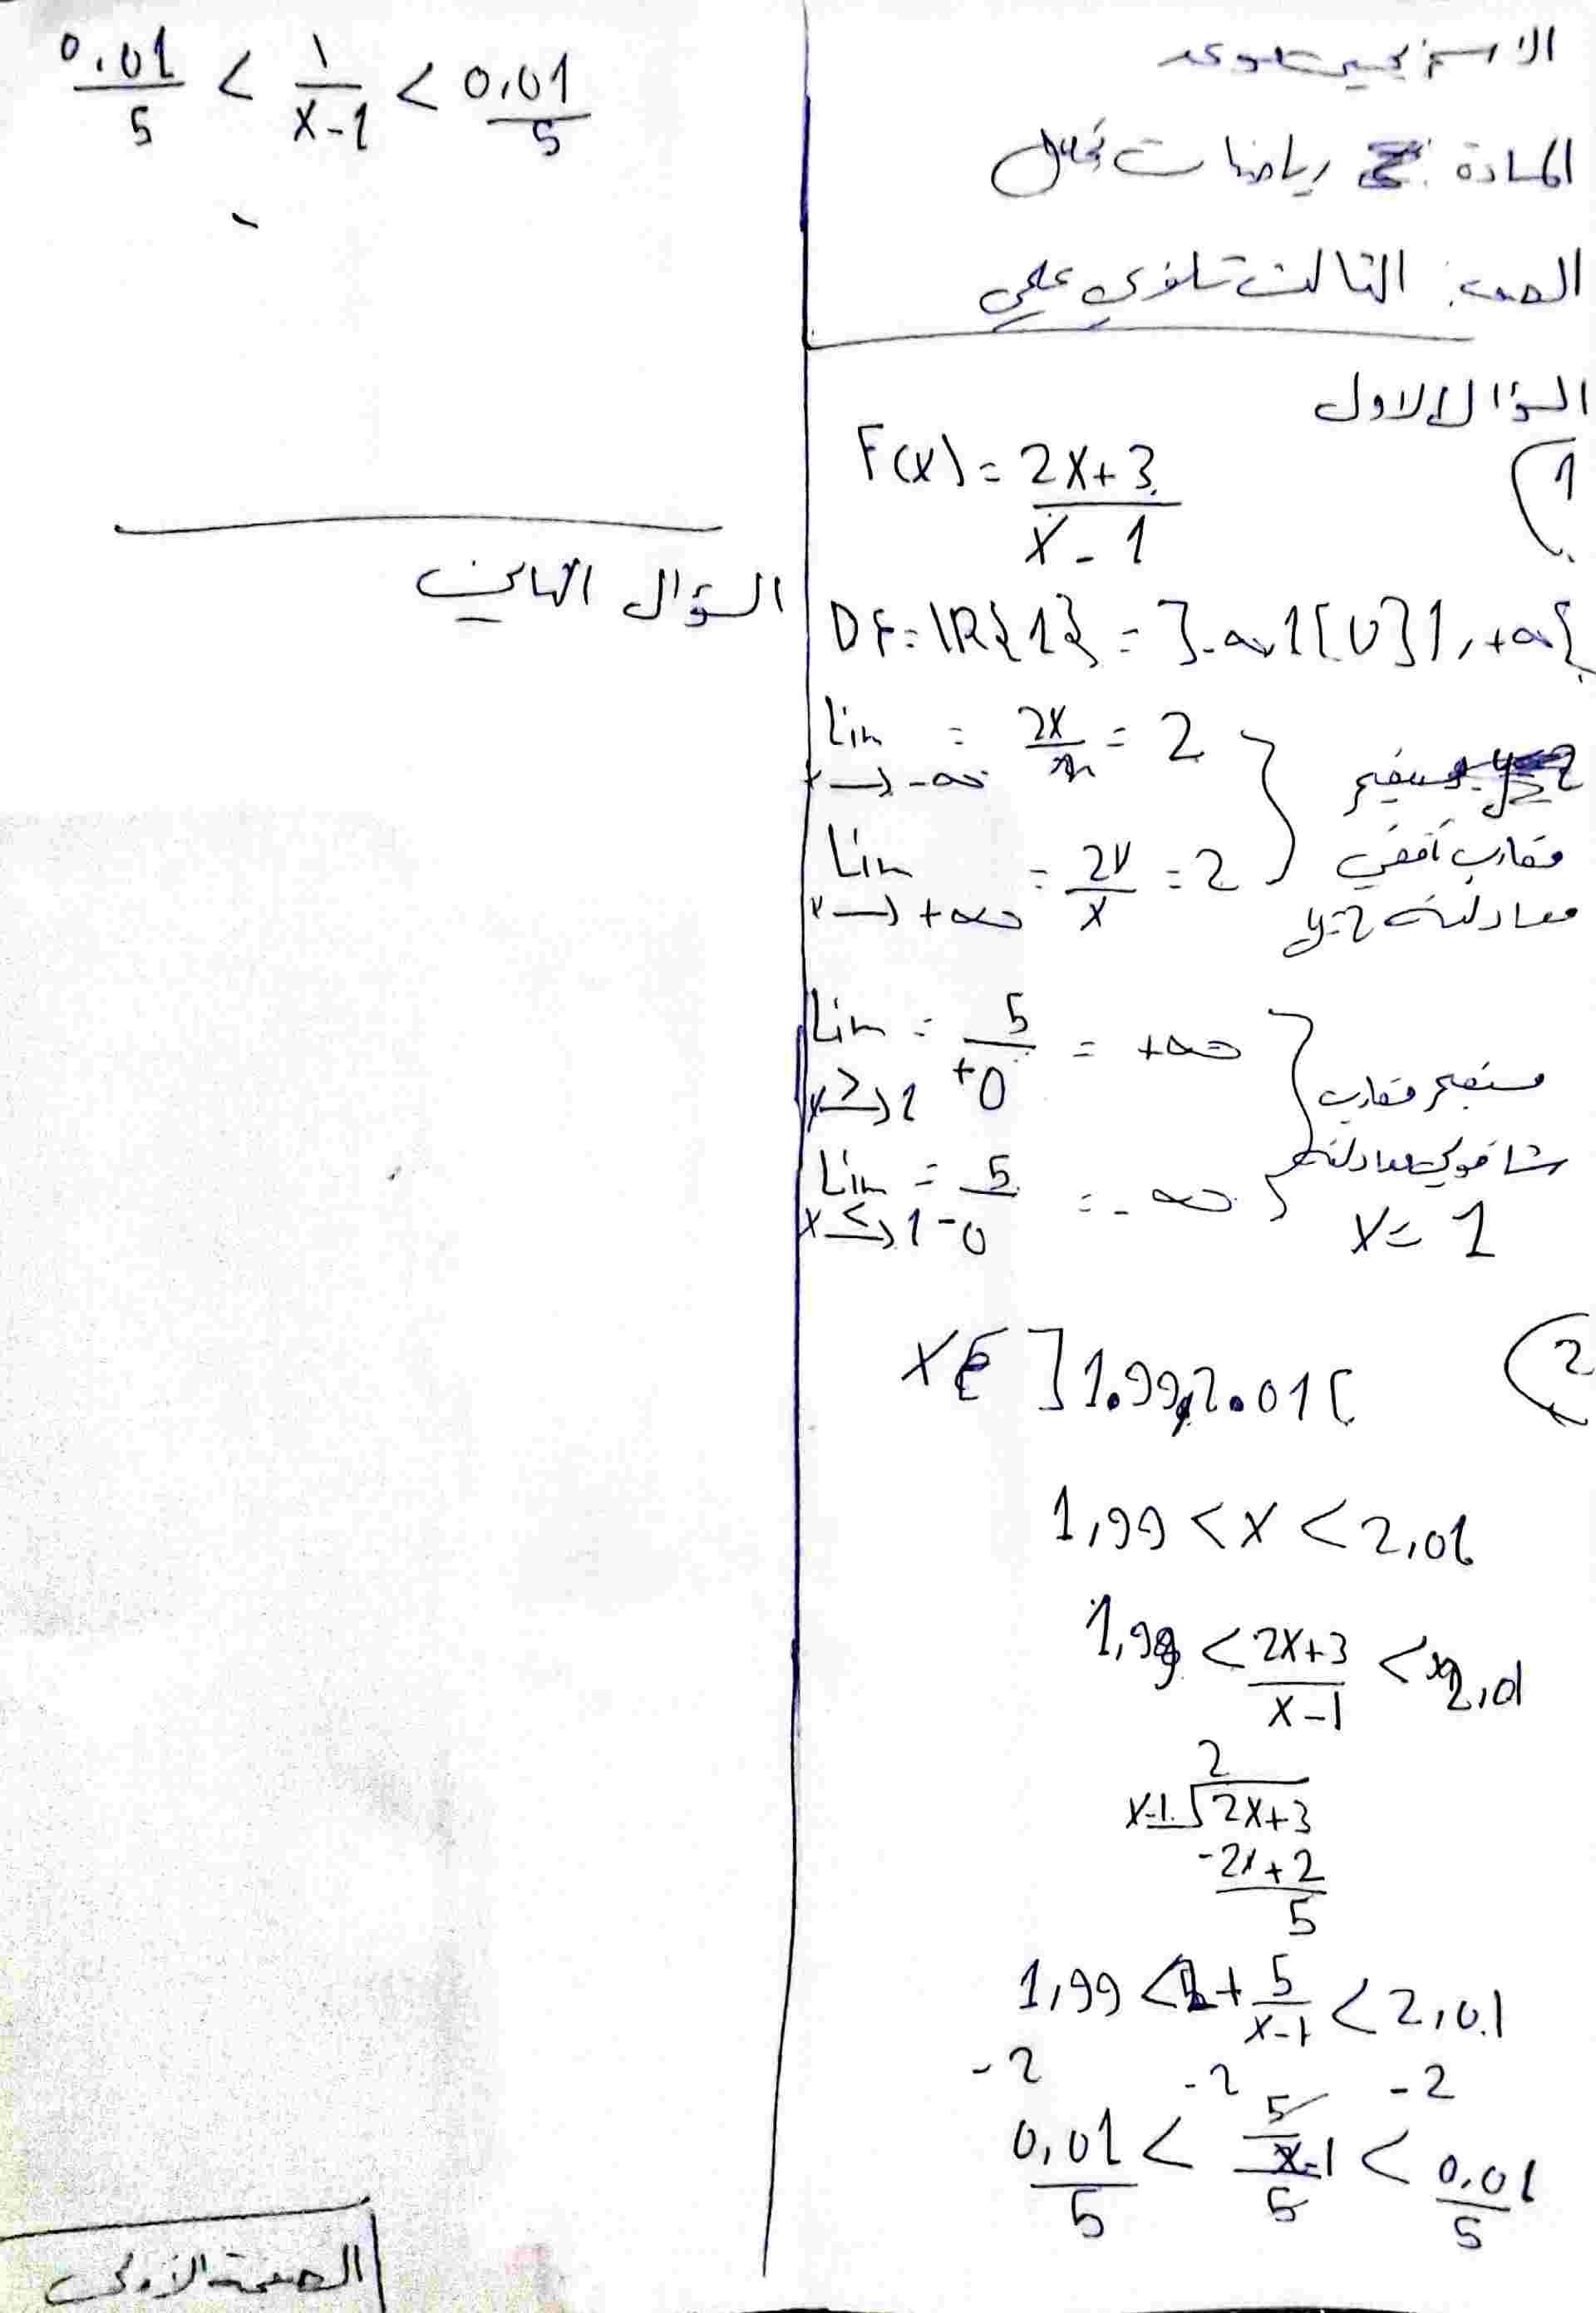 المادة: رياضيات تحليل
الصف: الثالث ثانوي علمي
السؤال الاول
1)
F(x) = 2x+3 / x-1
DF = IR{1} = ]-∞,1[U]1,+∞[
Lim x→-∞ = 2x/x = 2
مستقيم
Lim x→+∞ = 2x/x = 2
مقارب أفقي
معادلته y=2
Lim x>→1 = 5/+0 = +∞
مستقيم مقارب
شاقولي معادلته
Lim x<→1 = 5/-0 = -∞
x = 1
2)
x∈ ]1.99,2.01[
1,99 < x < 2,01
1,99 < 2x+3 / x-1 < 2,01
2
x-1 √2x+3
-2x+2
5
1,99 < 2 + 5/x-1 < 2,01
-2 -2 -2
0,01/5 < 5/x-1/5 < 0,01/5
0,01/5 < 1/x-1 < 0,01/5
السؤال الثاني
الصفحة الأولى